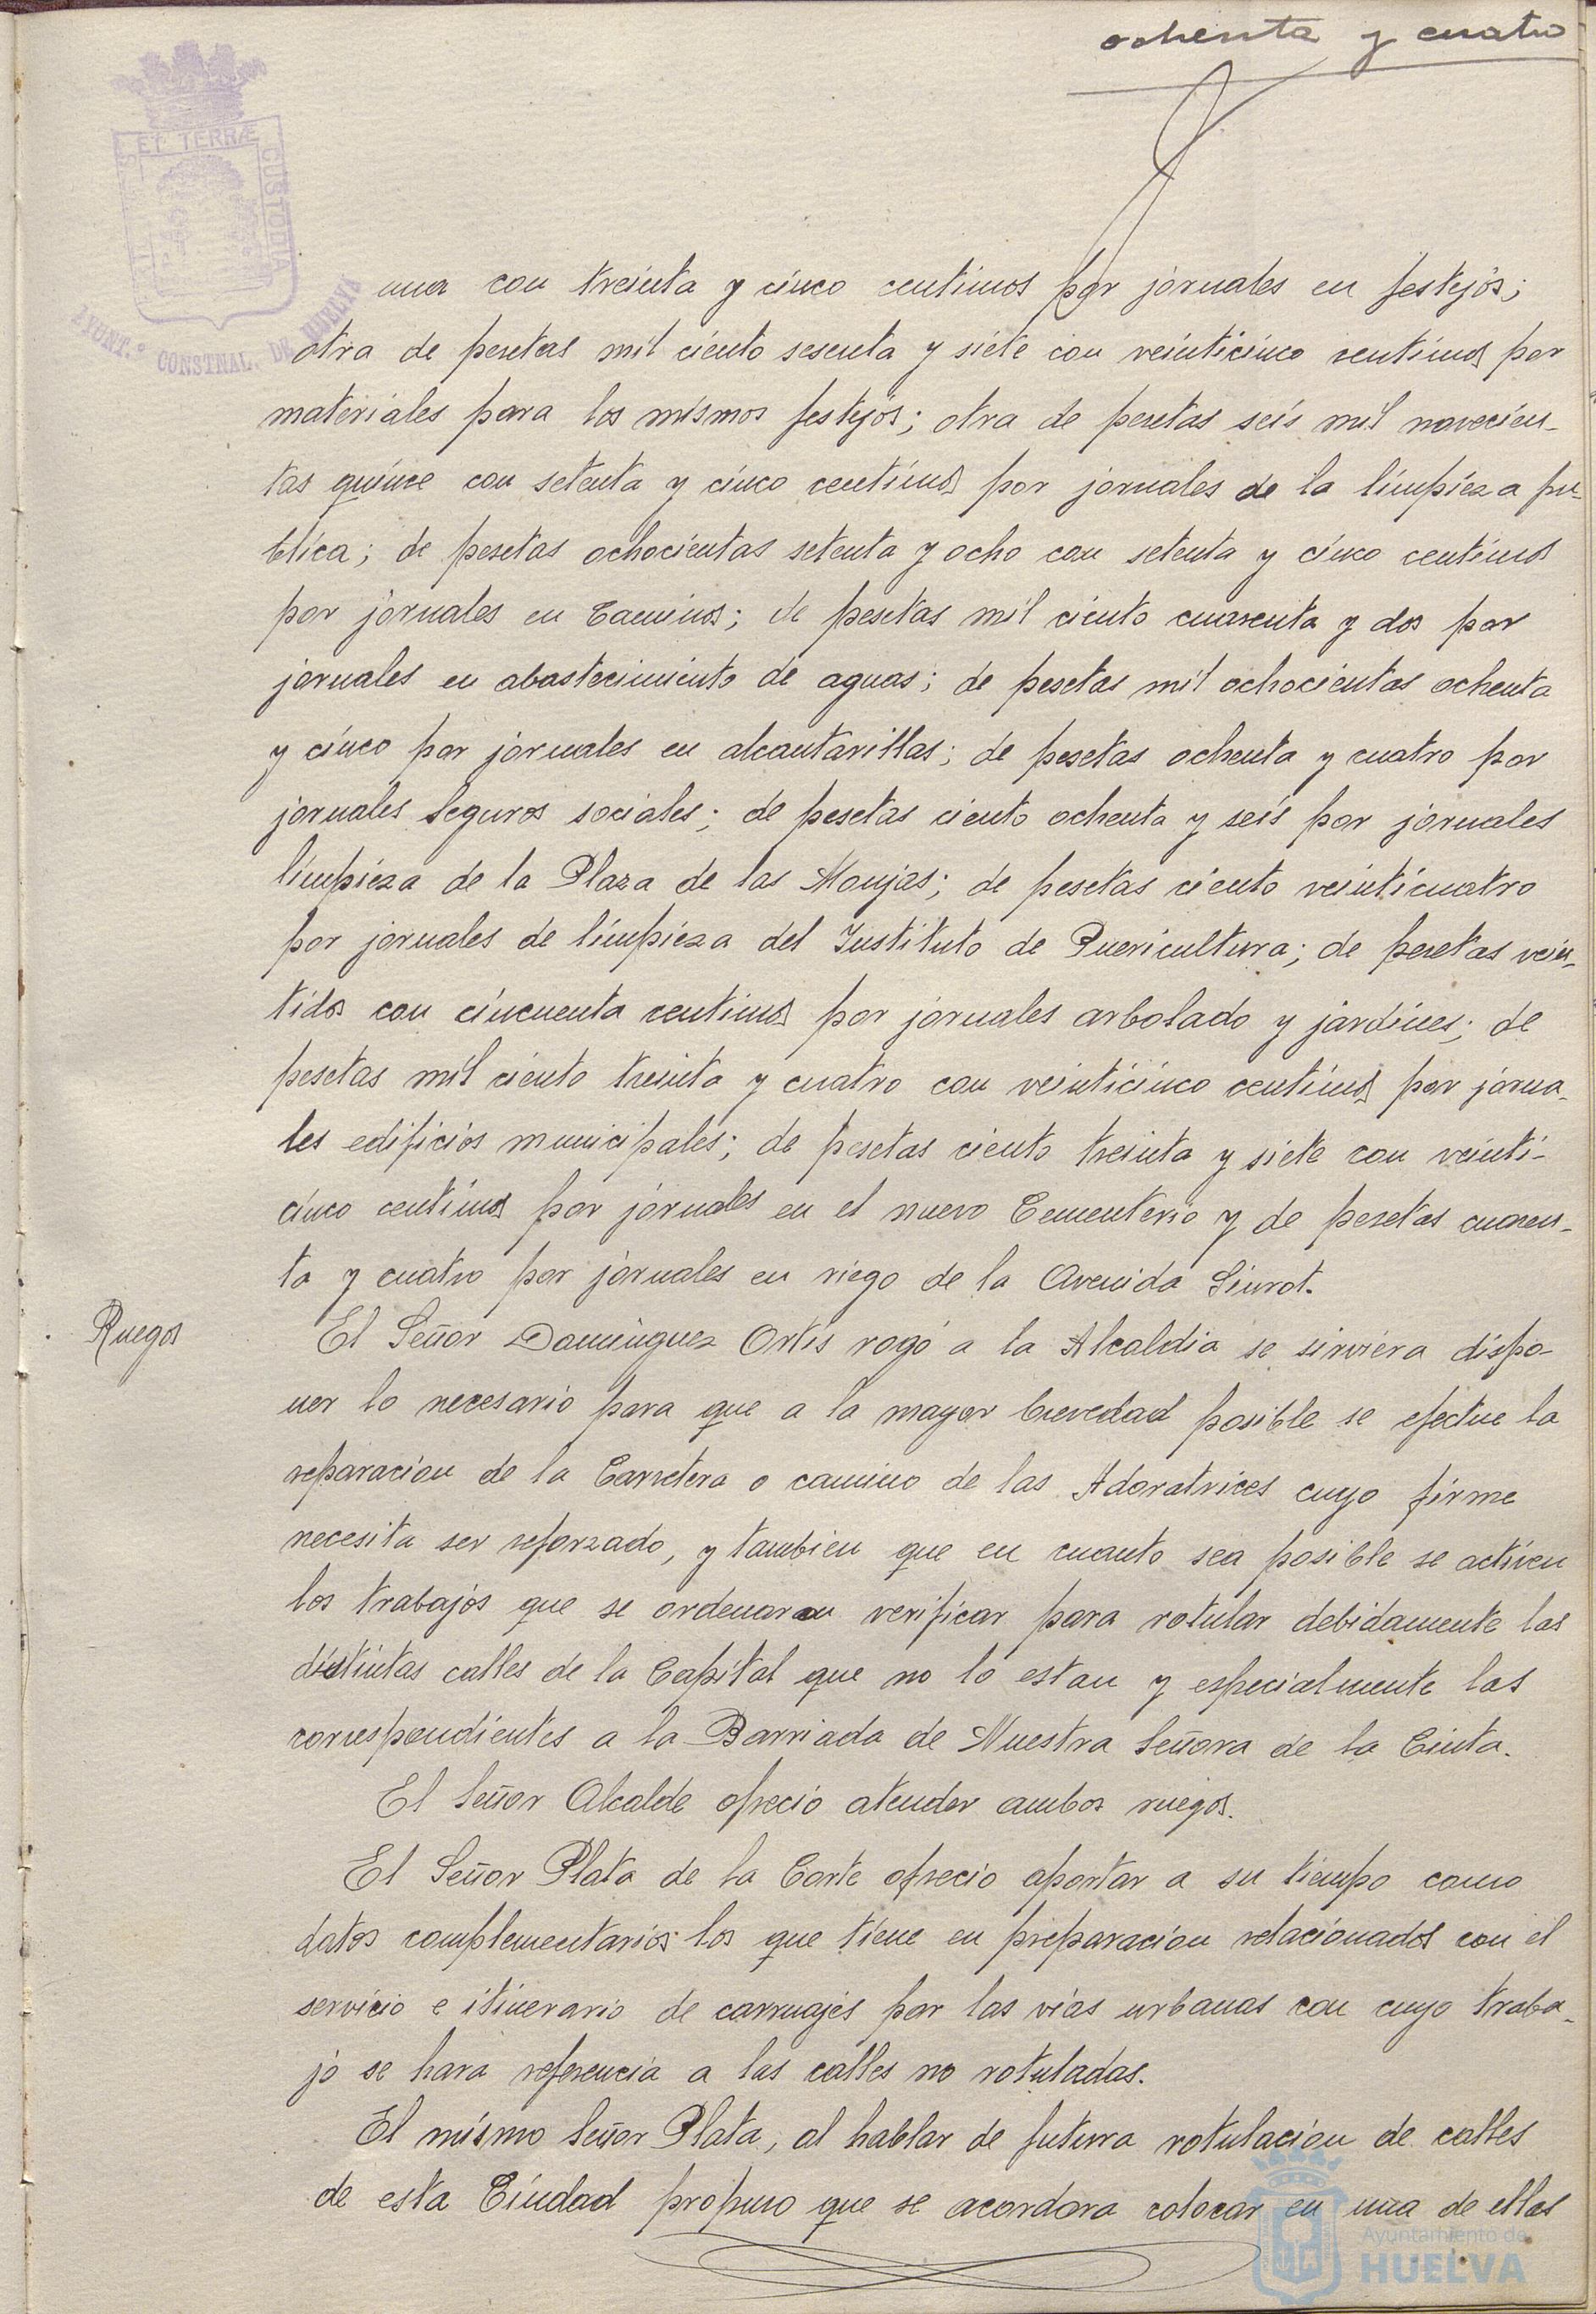 ochenta y cuatro
ET TERRÆ
CUSTODIA
AYUNT.º CONSTNAL. DE HUELVA
una con treinta y cinco centimos por jornales en festejos;
otra de pesetas mil ciento sesenta y siete con veinticinco centimos por
materiales para los mismos festejos; otra de pesetas seis mil novecien-
tas quince con setenta y cinco centimos por jornales de la limpieza pu-
blica; de pesetas ochocientas setenta y ocho con setenta y cinco centimos
por jornales en Caminos; de pesetas mil ciento cuarenta y dos por
jornales en abastecimiento de aguas; de pesetas mil ochocientas ochenta
y cinco por jornales en alcantarillas; de pesetas ochenta y cuatro por
jornales seguros sociales; de pesetas ciento ochenta y seis por jornales
limpieza de la Plaza de las Monjas; de pesetas ciento veinticuatro
por jornales de limpieza del Instituto de Puericultura; de pesetas vein-
tidos con cincuenta centimos por jornales arbolado y jardines; de
pesetas mil ciento treinta y cuatro con veinticinco centimos por jorna-
les edificios municipales; de pesetas ciento treinta y siete con veinti-
cinco centimos por jornales en el nuevo Cementerio y de pesetas cuaren-
ta y cuatro por jornales en riego de la Avenida Siurot.
Ruegos
El Señor Dominguez Ortis rogó a la Alcaldia se sirviera dispo-
ner lo necesario para que a la mayor brevedad posible se efectue la
reparacion de la Carretera o camino de las Adoratrices cuyo firme
necesita ser reforzado, y tambien que en cuanto sea posible se activen
los trabajos que se ordenaron verificar para rotular debidamente las
distintas calles de la Capital que no lo estan y especialmente las
correspondientes a la Barriada de Nuestra Señora de la Cinta.
El Señor Alcalde ofrecio atender ambos ruegos.
El Señor Plata de la Corte ofrecio aportar a su tiempo como
datos complementarios los que tiene en preparacion relacionados con el
servicio e itinerario de carruajes por las vias urbanas con cuyo traba-
jo se hara referencia a las calles no rotuladas.
El mismo Señor Plata, al hablar de futura rotulacion de calles
de esta Ciudad propuso que se acordara colocar en una de ellas
Ayuntamiento de
HUELVA